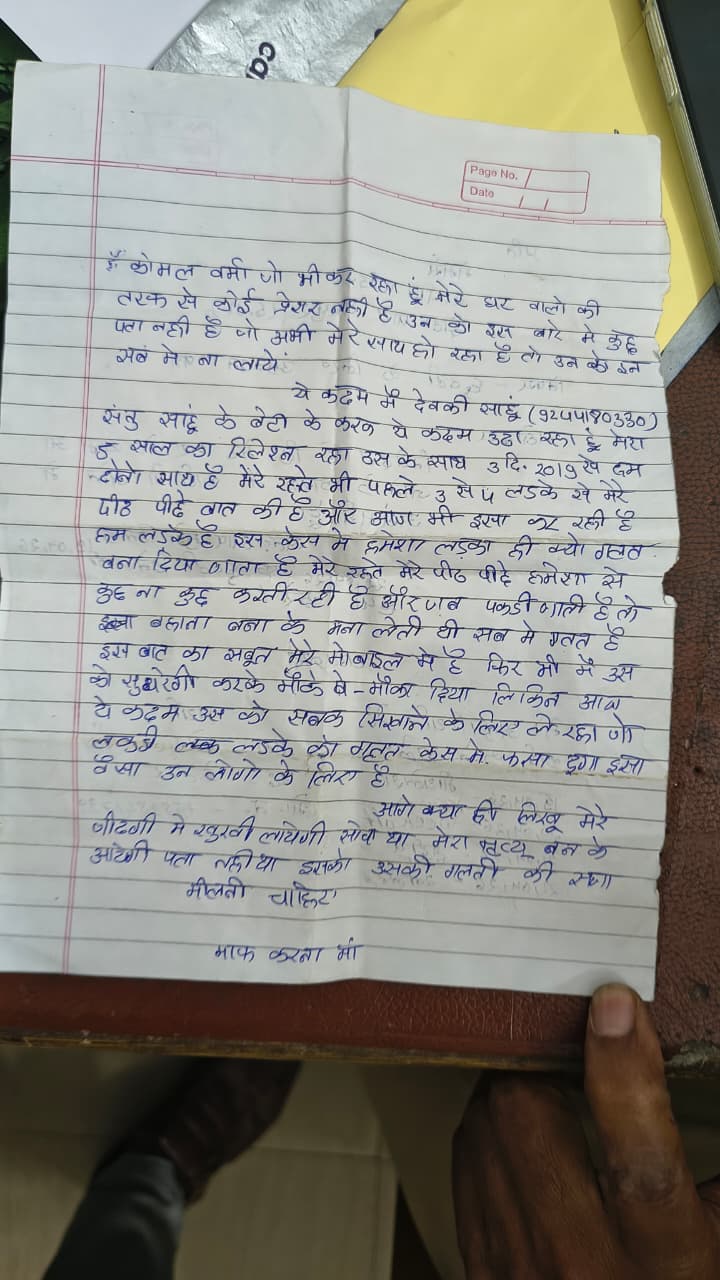 ca
Page No.
Date
मैं कोमल वर्मा जो भी कर रहा हूं मेरे घर वालो की
तरफ से कोई प्रेशर नही है उन को इस बारे मे कुछ
पता नही है जो अभी मेरे साथ हो रहा है तो उन को इन
सब मे ना लाये
ये कदम मैं देवकी साहूं (9244180330)
संतु साहूं के बेटी के करन ये कदम उठा रहा हूं मेरा
5 साल का रिलेशन रहा उस के साथ 3 दि. 2019 से हम
दोनो साथ है मेरे रहते भी पहले 3 से 4 लडके से मेरे
पीठ पीछे बात की है और आज भी इसा कर रही है
हम लडके है इस केस मे हमेशा लडका ही क्यो गलत
बना दिया जाता है मेरे रहते मेरे पीठ पीछे हमेशा से
कुछ ना कुछ करती रही है और जब पकडी जाती है तो
बहाना बना के मना लेती थी सब मे गलत है
इस बात का सबूत मेरे मोबाइल मे है फिर भी मैं उस
को सुधरेगी करके मौके बे-मौका दिया लिकिन आज
ये कदम उस को सबक सिखाने के लिए ले रहा जो
लडके को गलत केस मे. फसा दूगा इसा
वैसा उन लोगो के लिए है
आगे क्या ही लिखू मेरे
जीदगी मे खुशी लायेगी सोचा था मेरा मृत्यू बन के
आयेगी पता नही था इसको उसकी गलती की सजा
मीलनी चाहिए
माफ करना मां